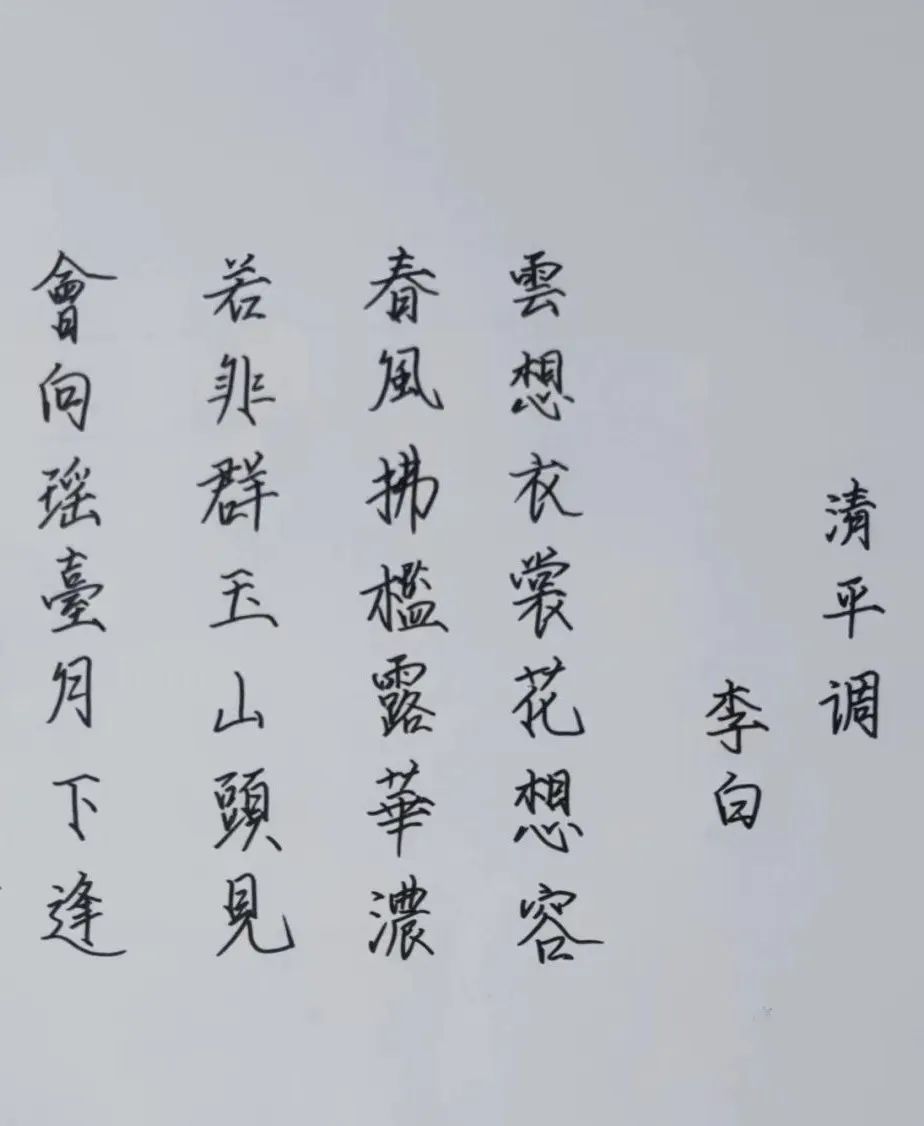 清平调
李白
雲想衣裳花想容
春風拂檻露華濃
若非群玉山頭見
會向瑶臺月下逢